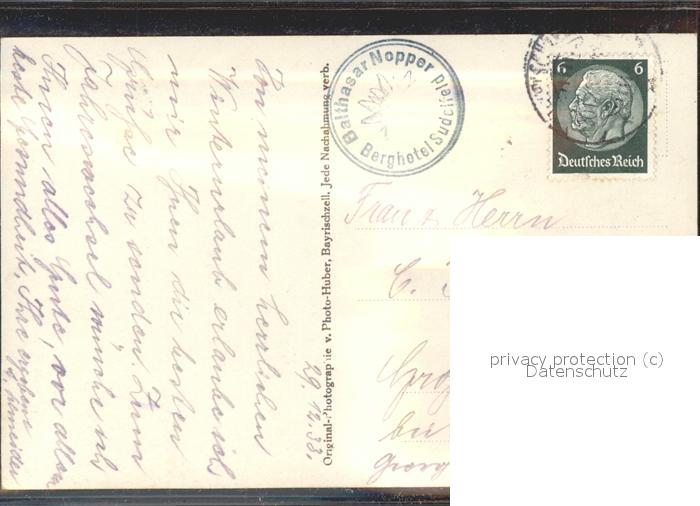 29.12.33.
Von meinem herrlichen
Winterurlaub erlaube ich
mir Ihnen die besten
Grüße zu senden. Zum
Jahreswechsel wünsche ich
Ihnen alles Gute, vor allem
beste Gesundheit, Ihre ergebene
Schneider
Original-Photographie v. Photo-Huber, Bayrischzell. Jede Nachahmung verb.
Balthasar Nopper
Berghotel Sudelfeld
6 6
Deutsches Reich
Frau & Herrn
C.
bei
Georg
privacy protection (c)
Datenschutz